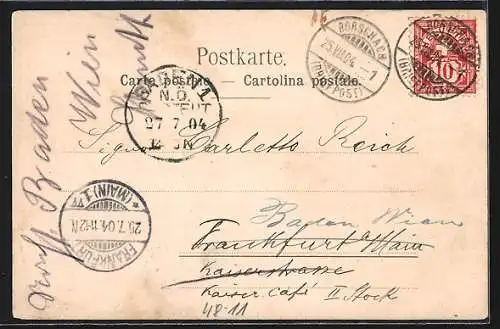 Postkarte.
Carta postale — Cartolina postale.
RORSCHACH
25.VII.04
(BRIEFPOST)
10
BADEN 1
N.Ö.
27 7 04
Sigr Carletto Reich
Baden Wien
Frankfurt a/Main
Kaiserstrasse
Kaiser Café II Stock
48-11
FRANKFURT
(MAIN) 1
26.7.04.11-12N
Baden
Wien